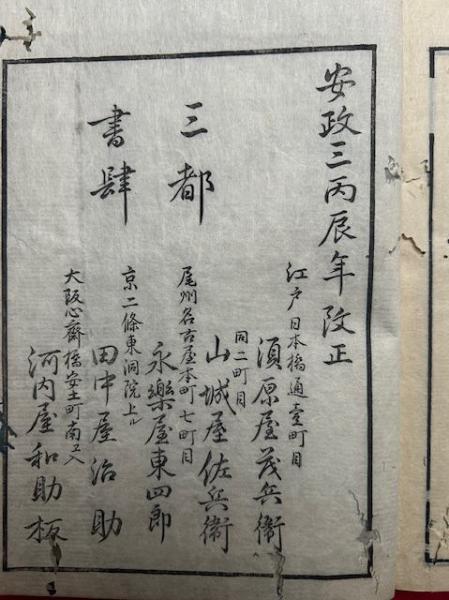 安政三丙辰年改正
三都
書肆
江戸日本橋通壹町目
須原屋茂兵衛
同二町目
山城屋佐兵衛
尾州名古屋本町七町目
永樂屋東四郎
京二條東洞院上ル
田中屋治助
大阪心齋橋安土町南ヱ入
河内屋和助板